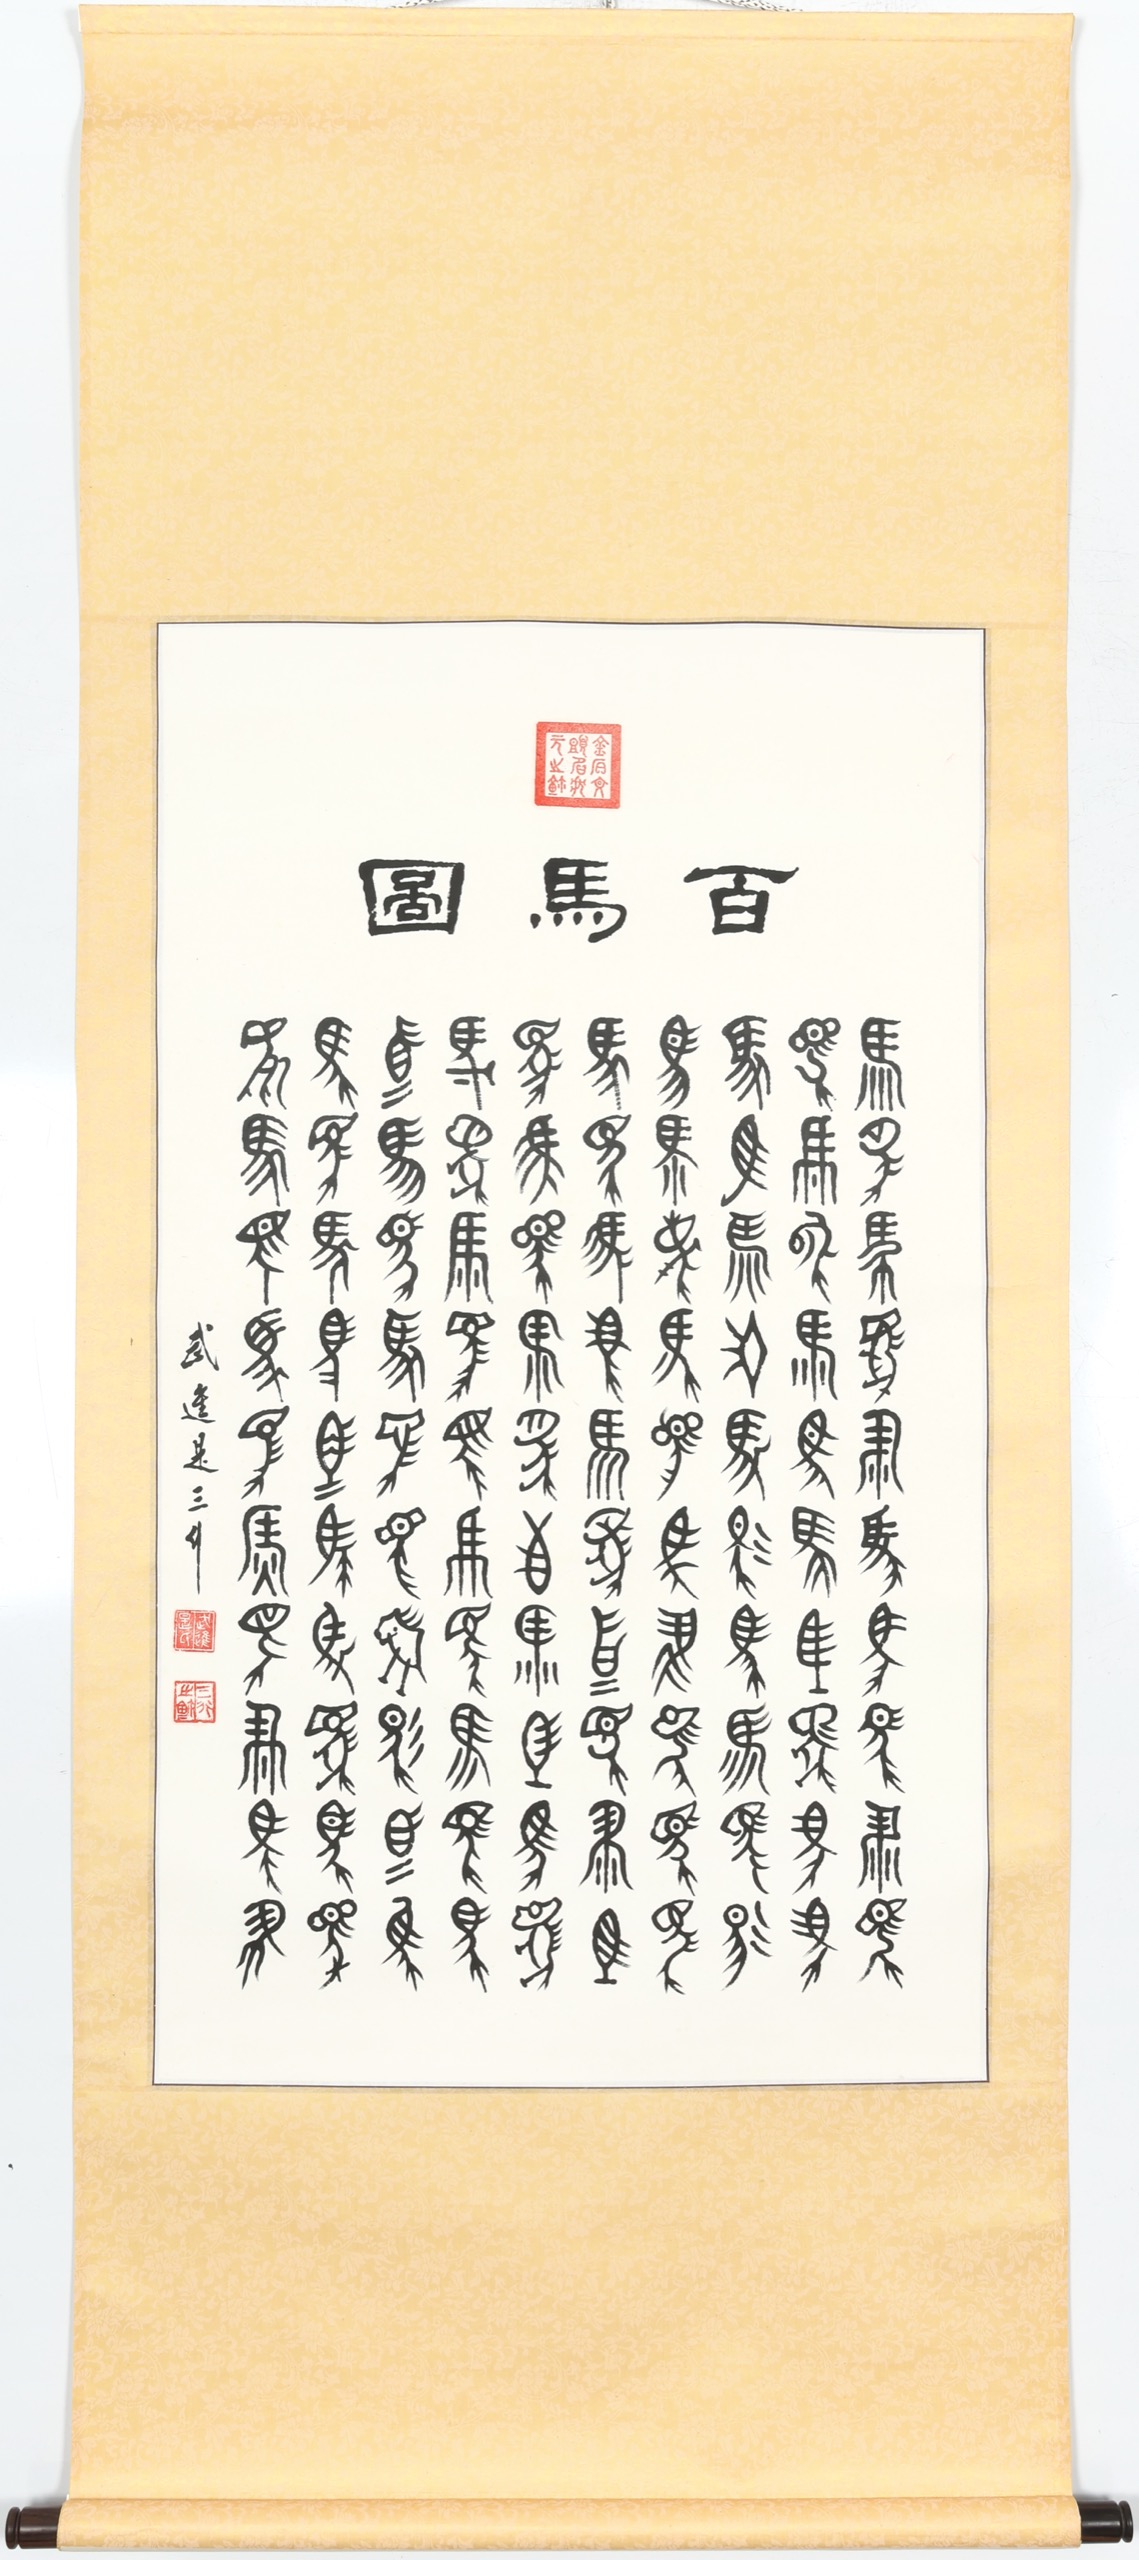 百馬圖
馬馬馬馬馬馬馬馬馬馬
馬馬馬馬馬馬馬馬馬馬
馬馬馬馬馬馬馬馬馬馬
馬馬馬馬馬馬馬馬馬馬
馬馬馬馬馬馬馬馬馬馬
馬馬馬馬馬馬馬馬馬馬
馬馬馬馬馬馬馬馬馬馬
馬馬馬馬馬馬馬馬馬馬
馬馬馬馬馬馬馬馬馬馬
馬馬馬馬馬馬馬馬馬馬
武進是三
武進是氏